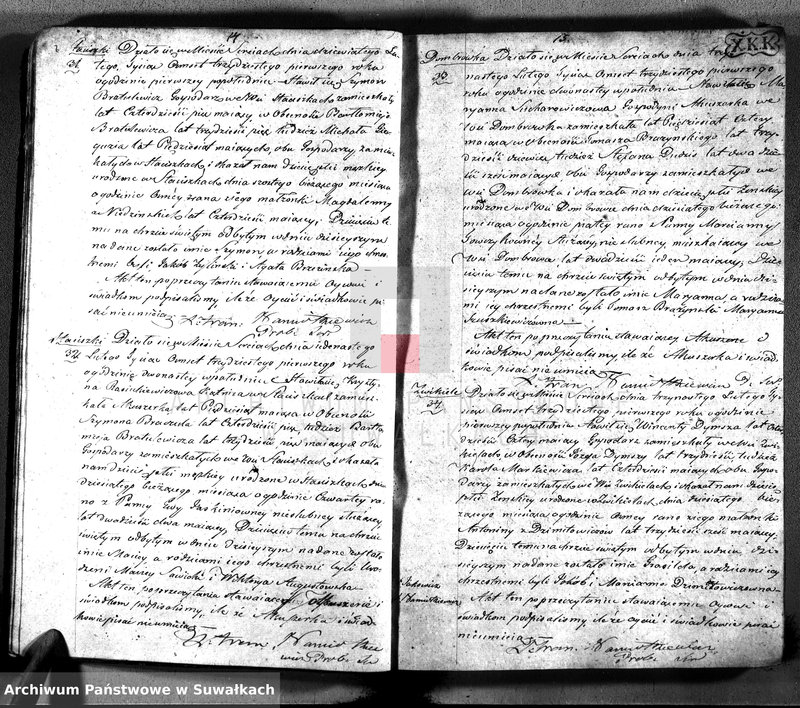 14
Staciszki Działo się w Mieście Sereiach dnia dziewiątego Lu-
31 tego, Tysiąc Ośmset trzydziestego pierwszego roku
o godzinie pierwszey popołudniu. Stawił się Szymon
Bratulewicz Gospodarz we Wsi Staciszkach zamieszkały
lat Czterdzieści pięć maiący w Obecności Bartłomieja
Bratulewicza lat trzydzieści pięć tudzież Michała
lat Pięćdziesiąt maiących, obu Gospodarzy zamie-
szkałych w Staciszkach i okazał nam dziecię płci męzkiey
urodzone w Staciszkach dnia szóstego bieżącego miesiąca
o godzinie ósmey zrana z jego małżonki Magdaleny
z Niedzinskich lat Czterdzieści maiącey; Dziecięciu te-
mu na chrzcie świętym odbytym w dniu dzisieyszym
nadane zostało imie Szymon, a rodzicami jego chrzest-
nemi byli Jakób i Agata
Akt ten po przeczytaniu stawaiącemu Oycowi i
świadkom podpisaliśmy, ile że Oyciec i świadkowie pi-
sać nieumieią
X. Fran. Namiotkiewicz
Prob. Ser
Staciszki Działo się w Mieście Sereiach dnia iedenastego
32 Lutego Tysiąc Ośmset trzydziestego pierwszego roku
o godzinie dwónastey wpołudnie Stawiła się Krysty-
na w Staciszkach zamiesz-
kała Akuszerka, lat Pięćdziesiąt maiąca w Obecności
Szymona lat Czterdzieści pięć tudzież Bartło-
mieja Bratulewicza lat trzydzieści pięć maiących obu
Gospodarzy zamieszkałych we Wsi Staciszkach i okazała
nam dziecię płci męzkiey urodzone w Staciszkach dnia
dziesiątego bieżącego miesiąca o godzinie Czwartey ra-
no z Panny Ewy niezślubney służącey,
lat dwadzieścia dwa maiącey, Dziecięciu temu na chrzcie
świętym odbytym w dniu dzisieyszym nadane zostało
imie Maciey a rodzicami jego chrzestnemi byli
Maciey Sawicki i Wiktorya Augustowska
Akt ten po przeczytaniu stawaiącey Akuszerce i
świadkom podpisaliśmy, ile że Akuszerka i świad-
kowie pisać nieumieią
X. Fran. Namiotkie
wicz Prob. Ser
15
XKK
Dombrowka Działo się w Mieście Sereiach dnia trzy-
33 nastego Lutego Tysiąc Ośmset trzydziestego pierwszego
roku o godzinie dwónastey w południe Stawiła się Ma-
ryanna Sucharewiczowa Gospodyni Akuszerka we
Wsi Dombrowka zamieszkała lat Pięćdziesiąt Cztery
maiąca w Obecności Tomasza Brażynskiego lat trzy-
dzieści tudzież Stefana lat dwadzie-
ścia sześć maiących obu Gospodarzy zamieszkałych we
Wsi Dombrowka i okazała nam dziecię płci żenskiey
urodzone we Wsi Dombrowce dnia dziesiątego bieżącego
miesiąca o godzinie piątey rano z Panny Maryanny
niezślubney, mieszkaiącey we
Wsi Dombrowce lat dwadzieścia ieden maiącey, Dzie-
cięciu temu na chrzcie świętym odbytym w dniu dzi-
sieyszym nadane zostało imie Maryanna, a rodzica-
mi iey chrzestnemi byli Tomasz Brażynski i Maryanna
Akt ten po przeczytaniu stawaiącey Akuszerce i
świadkom podpisaliśmy ile że Akuszerka i świad-
kowie pisać nieumieią
X. Fran. Namiotkiewicz P. Ser.
Zwikiele Działo się w Mieście Sereiach dnia trzynastego Lutego Ty-
34 siąc Ośmset trzydziestego pierwszego roku o godzinie
pierwszey popołudniu Stawił się Wincenty Dymsza lat
Cztery maiący Gospodarz zamieszkały we Wsi Zwi-
kielach w Obecności Józefa Dymszy lat trzydzieści tudzież
Karola Markiewicza lat Czterdzieści maiących, obu Gospo-
darzy zamieszkałych we Wsi Zwikielach i okazał nam dziecię
płci żenskiey urodzone w Zwikielach, dnia dziesiątego bie-
żącego miesiąca o godzinie ósmey rano z jego małżonki
Antoniny z Dzimitowiczów lat trzydzieści sześć maiącey,
Dziecięciu temu na chrzcie świętym odbytym w dniu dzi-
sieyszym nadane zostało imie a rodzicami iey
chrzestnemi byli Jakób i Maryanna Dzimitowiczowna
Akt ten po przeczytaniu stawaiącemu Oycowi i
świadkom podpisaliśmy ile że Oyciec i świadkowie pisać
nieumieią
X. Fran. Namiotkiewicz
Prob. Ser
Archiwum Państwowe w Suwałkach